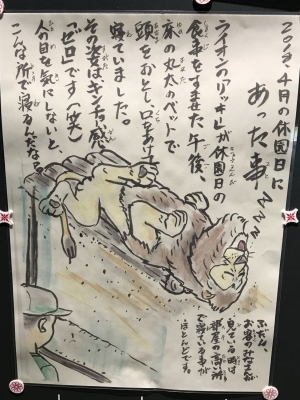 2018、4月の休園日に
あった事
ライオンの「リッキー」が休園日の
食事をすませた午後、
床の丸太のベットで
頭をおとし口をあけて
寝ていました。
その姿はキンチョー感
「ゼロ」です(笑)
人の目を気にしないと、
こんな所で寝るんだな。
ZZZZ
ふだん、
お客のみなさんが
見ている時は
部屋の高い所
で寝ている事が
ほとんどです。